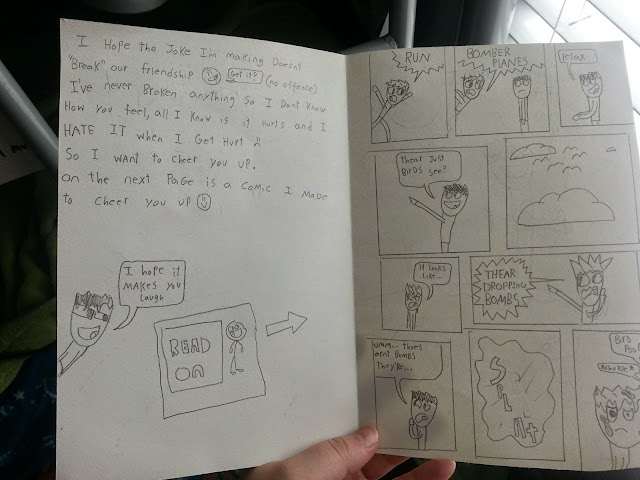 I Hope the Joke I'm making Doesnt
"Break" our friendship Get it? (no offence)
I've never Broken anything so I Dont Know
How you feel, all I know is it Hurts and I
HATE IT when I Get Hurt
So I want to cheer you up.
on the next Page is a comic I made
to cheer you up
I hope it
MAKES you
Laugh
READ
ON
RUN
BOMBER
PLANES
relax
thear Just
BirDS see?
it looks
Like...
THEAR
DROPPING
BOMBS
UMM... thoes
arnt BOMBS
they're...
SPLAt
BirD
Poop
*chokle*